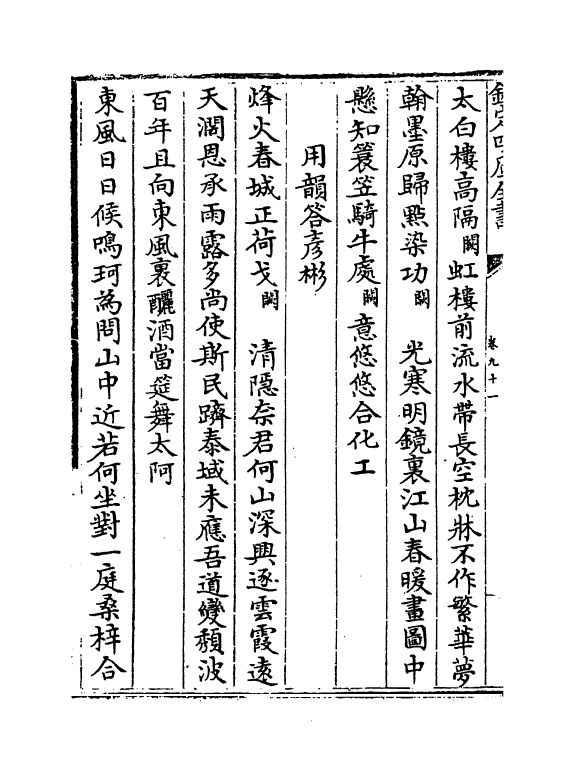 欽定四庫全書
卷九十一
太白樓高隔闕虹樓前流水帶長空枕牀不作繁華夢
翰墨原歸㸃染功闕　光寒明鏡裏江山春暖畫圖中
懸知簑笠騎牛處闕意悠悠合化工
用韻答彦彬
烽火春城正荷戈闕　清隠奈君何山深興逐雲霞逺
天濶恩承雨露多尚使斯民躋泰域未應吾道變頽波
百年且向東風裏釃酒當筵舞太阿
東風日日候鳴珂為問山中近若何坐對一庭桑梓合